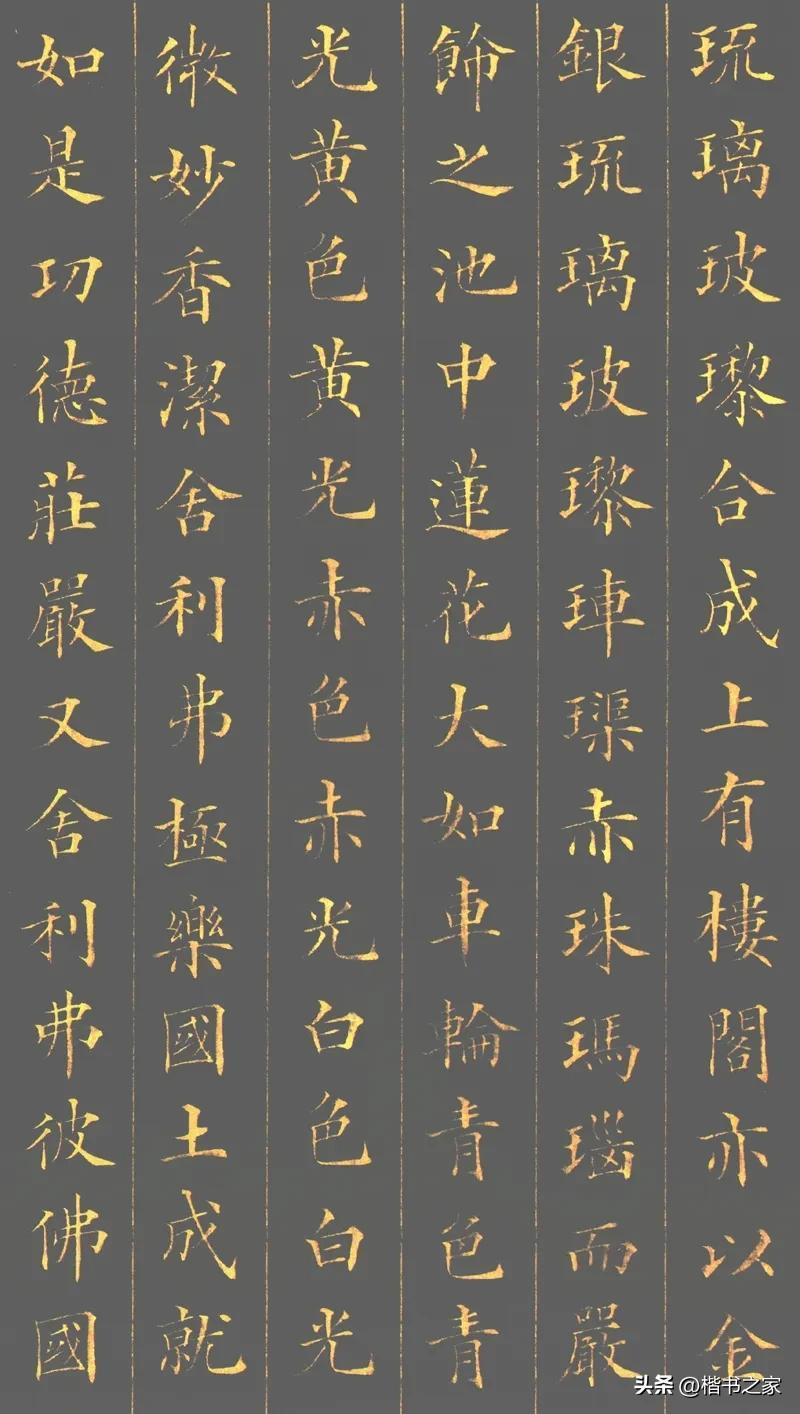 琉璃玻瓈合成上有樓閣亦以金
銀琉璃玻瓈硨璖赤珠瑪瑙而嚴
飾之池中蓮花大如車輪青色青
光黃色黃光赤色赤光白色白光
微妙香潔舍利弗極樂國土成就
如是功德莊嚴又舍利弗彼佛國
头条 @楷书之家